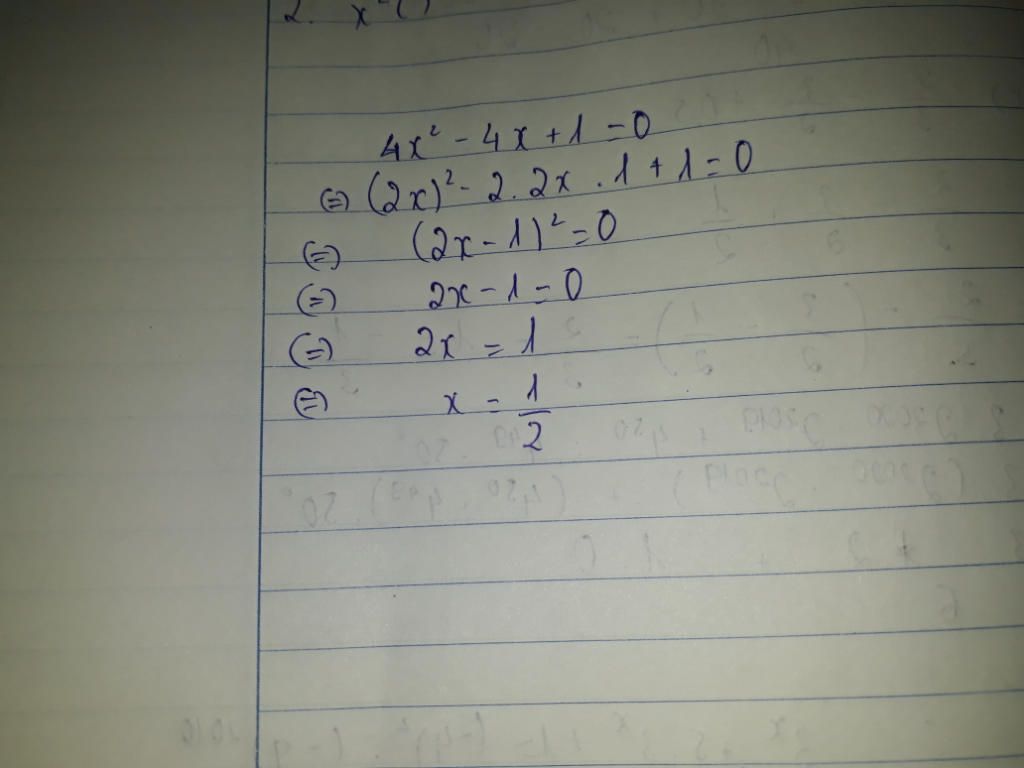 2. x
4x² - 4x + 1 = 0
⇔ (2x)² - 2.2x.1 + 1 = 0
⇔ (2x - 1)² = 0
⇔ 2x - 1 = 0
⇔ 2x = 1
⇔ x = 1/2